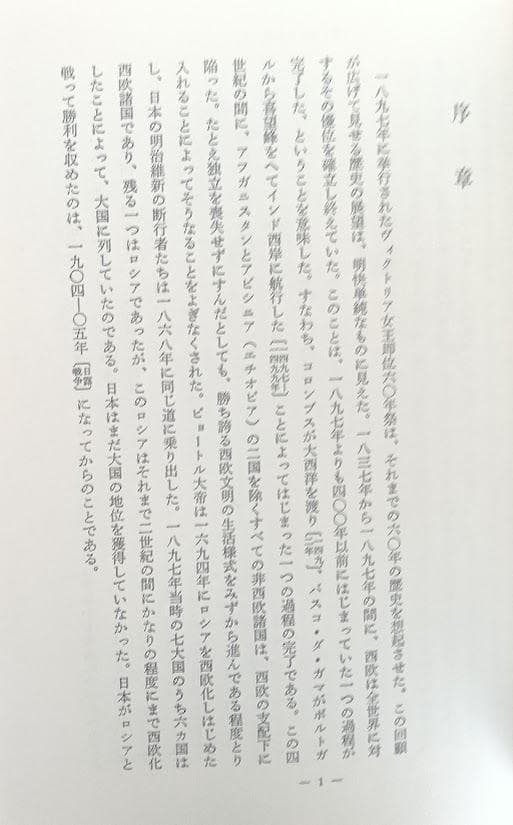 序章
一八九七年に挙行されたヴィクトリア女王即位六〇年祭は、それまでの六〇年の歴史を想起させた。この回顧
が広げて見せる歴史の展望は、明快単純なものに見えた。一八三七年から一八九七年の間に、西欧は全世界に対
するその優位を確立し終えていた。このことは、一八九七年よりも四〇〇年以前にはじまっていた一つの過程が
完了した、ということを意味した。すなわち、コロンブスが大西洋を渡り〔一四九二年〕、バスコ・ダ・ガマがポルトガ
ルから喜望峰をへてインド西岸に航行した〔一四九七―一四九九年〕ことによってはじまった一つの過程の完了である。この四
世紀の間に、アフガニスタンとアビシニア（エチオピア）の二国を除くすべての非西欧諸国は、西欧の支配下に
陥った。たとえ独立を喪失せずにすんだとしても、勝ち誇る西欧文明の生活様式をみずから進んである程度とり
入れることによってそうなることをよぎなくされた。ピョートル大帝は一六九四年にロシアを西欧化しはじめた
し、日本の明治維新の断行者たちは一八六八年に同じ道に乗り出した。一八九七年当時の七大国のうち六ヵ国は
西欧諸国であり、残る一つはロシアであったが、このロシアはそれまで二世紀の間にかなりの程度にまで西欧化
したことによって、大国に列していたのである。日本はまだ大国の地位を獲得していなかった。日本がロシアと
戦って勝利を収めたのは、一九〇四―〇五年〔日露戦争〕になってからのことである。
― 1 ―